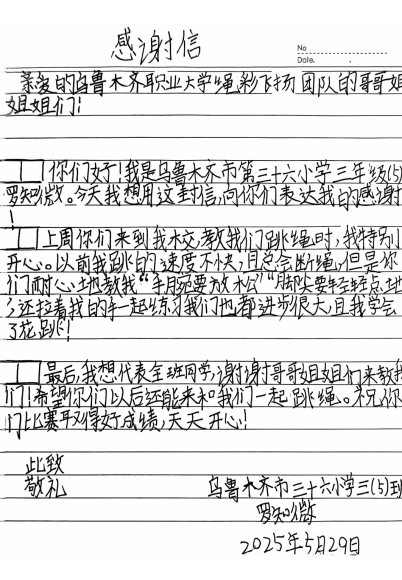 感谢信
No
Date.
亲爱的乌鲁木齐职业大学绳彩飞扬团队的哥哥姐
姐姐们!
你们好!我是乌鲁木齐市第三十六小学三年级(5)
罗知微。今天我想用这封信,向你们表达我的感谢
!
上周你们来到我校教我们跳绳时,我特别
开心。以前我跳的速度不快,且总会断绳,但是你
们耐心地教我“手腕要放松”“脚尖要轻轻点地
还拉着我的手一起练习我们也都进步很大,且我学会
了花跳!
最后,我想代表全班同学,谢谢哥哥姐姐们来教我
们!希望你们以后还能来和我们一起跳绳。祝你
们比赛取得好成绩,天天开心!
此致
敬礼
乌鲁木齐市三十六小学三(5)班
罗知微
2025年5月29日